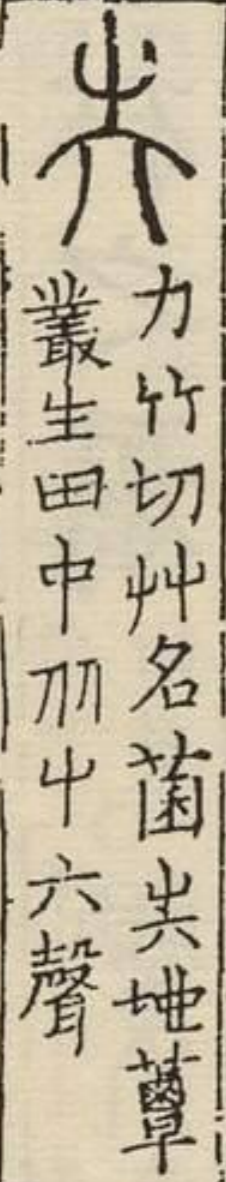 圥
力竹切艸名菌圥地蕈
叢生田中从屮六聲